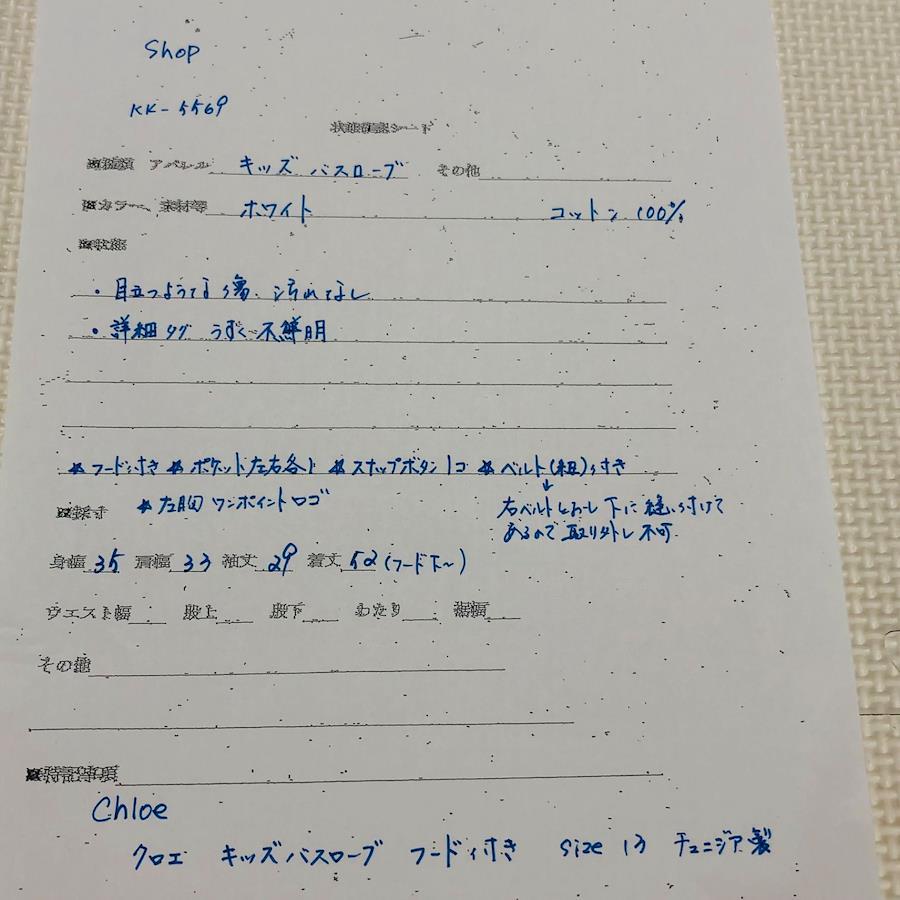 Shop
KK-5569
状態確認シート
■種類 アパレル キッズ バスローブ その他
■カラー、素材等 ホワイト コットン 100%
■状態
・目立つような傷、汚れなし
・詳細タグ うすく不鮮明
★フード付き ★ポケット左右各1 ★スナップボタン1コ ★ベルト(紐)付き
↓
★左胸ワンポイントロゴ 右ベルトとおし下に縫い付けて
あるので取り外し不可
■採寸
身幅 35 肩幅 33 袖丈 29 着丈 52(フード下〜)
ウエスト幅 股上 股下 わたり 裾幅
その他
■特記事項
Chloe
クロエ キッズバスローブ フード付き size 13 チュニジア製